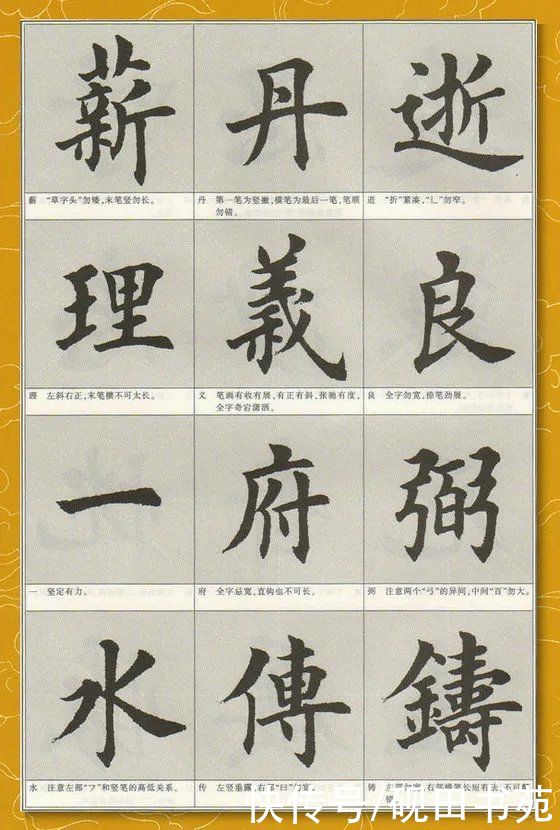 薪 丹 逝
薪 “草字头”勿矮,末笔竖勿长。
丹 第一笔为竖撇,横笔为最后一笔,笔顺
勿错。
逝 “折”紧凑,“辶”勿窄。
理 義 良
理 左斜右正,末笔横不可太长。
义 笔画有收有展,有正有斜,张驰有度,
全字奇宕潇洒。
良 全字勿宽,捺笔劲展。
一 府 弼
一 坚定有力。
府 全字忌宽,直钩也不可长。
弼 注意两个“弓”的异同,中间“百”勿大。
水 傳 鑄
水 注意左部“フ”和竖笔的高低关系。
传 左竖垂露,右部“曰”勿宽。
铸 左部勿宽,右部横笔长短有法,不可
错。
快传号/砚田书苑